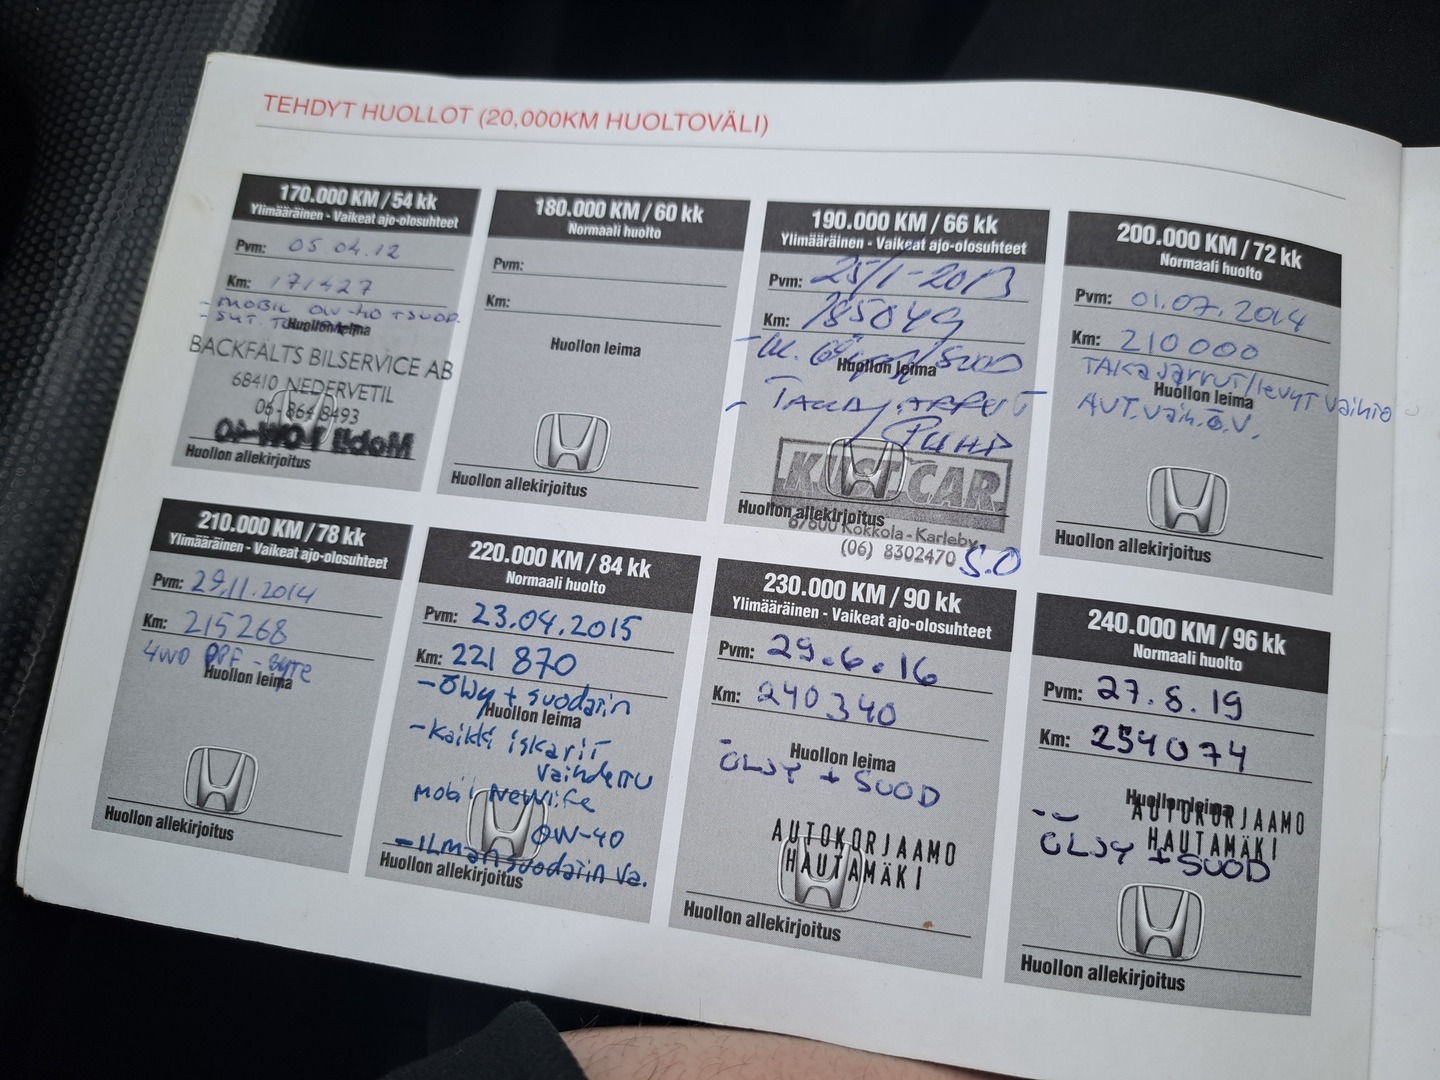 TEHDYT HUOLLOT (20,000KM HUOLTOVÄLI)
170.000 KM / 54 kk
Ylimääräinen - Vaikeat ajo-olosuhteet
Pvm: 05.04.12
Km: 171427
- MOBIL OW-40 TSUOD.
Huollon leima
BACKFÄLTS BILSERVICE AB
68410 NEDERVETIL
06-864 8493
Mobil 1 OW-40
Huollon allekirjoitus
180.000 KM / 60 kk
Normaali huolto
Pvm:
Km:
Huollon leima
Huollon allekirjoitus
190.000 KM / 66 kk
Ylimääräinen - Vaikeat ajo-olosuhteet
Pvm: 25/1-2013
Km: 185049
Huollon leima
- TAKAJARRUT
PUHD
KUST CAR
Huollon allekirjoitus
67600 Kokkola - Karleby
(06) 8302470 S.O
200.000 KM / 72 kk
Normaali huolto
Pvm: 01.07.2014
Km: 210000
TAKAJARRUT/LEVYT VAIHTO
Huollon leima
AUT.VAIH.Ö.V.
Huollon allekirjoitus
210.000 KM / 78 kk
Ylimääräinen - Vaikeat ajo-olosuhteet
Pvm: 29.11.2014
Km: 215268
4WD DPF -
Huollon leima
Huollon allekirjoitus
220.000 KM / 84 kk
Normaali huolto
Pvm: 23.04.2015
Km: 221 870
- Öljy + suodatin
Huollon leima
- Kaikki iskarit
vaihdettu
Mobil NewLife
OW-40
- Ilmansuodatin va.
Huollon allekirjoitus
230.000 KM / 90 kk
Ylimääräinen - Vaikeat ajo-olosuhteet
Pvm: 29.6.16
Km: 240340
Huollon leima
ÖLJY + SUOD
AUTOKORJAAMO
HAUTAMÄKI
Huollon allekirjoitus
240.000 KM / 96 kk
Normaali huolto
Pvm: 27.8.19
Km: 254074
Huollon leima
AUTOKORJAAMO
HAUTAMÄKI
ÖLJY + SUOD
Huollon allekirjoitus